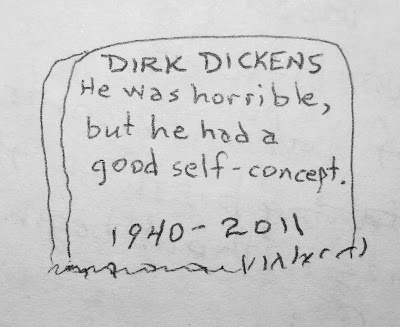 DIRK DICKENS
He was horrible,
but he had a
good self-concept.
1940-2011